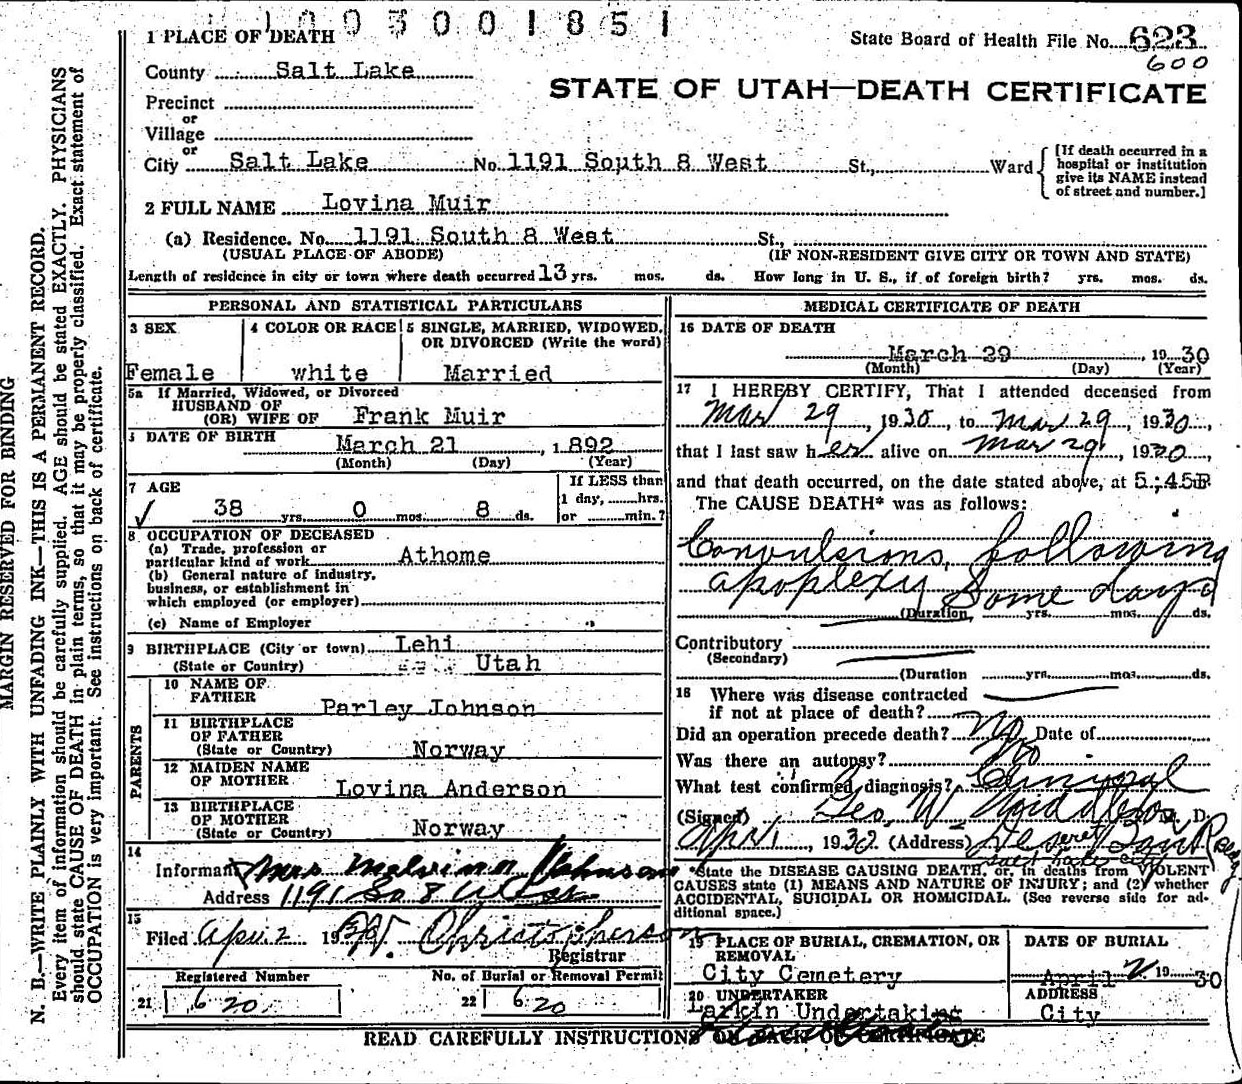 1 0 0 3 0 0 1 8 5 1
1 PLACE OF DEATH
State Board of Health File No. 623
600
County Salt Lake
STATE OF UTAH—DEATH CERTIFICATE
Precinct
or
Village
or
City Salt Lake No. 1191 South 8 West St., Ward
[If death occurred in a hospital or institution give its NAME instead of street and number.]
2 FULL NAME Lovina Muir
(a) Residence. No. 1191 South 8 West St.,
(USUAL PLACE OF ABODE) (IF NON-RESIDENT GIVE CITY OR TOWN AND STATE)
Length of residence in city or town where death occurred 13 yrs. mos. ds. How long in U. S., if of foreign birth? yrs. mos. ds.
PERSONAL AND STATISTICAL PARTICULARS
3 SEX
Female
4 COLOR OR RACE
white
5 SINGLE, MARRIED, WIDOWED,
OR DIVORCED (Write the word)
Married
5a If Married, Widowed, or Divorced
HUSBAND OF
(OR) WIFE OF Frank Muir
DATE OF BIRTH
March 21, 1892
(Month) (Day) (Year)
7 AGE
38 yrs. 0 mos. 8 ds.
If LESS than
1 day, hrs.
or min.?
8 OCCUPATION OF DECEASED
(a) Trade, profession or
particular kind of work Athome
(b) General nature of industry,
business, or establishment in
which employed (or employer)
(c) Name of Employer
9 BIRTHPLACE (City or town) Lehi
(State or Country) Utah
PARENTS
10 NAME OF
FATHER Parley Johnson
11 BIRTHPLACE
OF FATHER
(State or Country) Norway
12 MAIDEN NAME
OF MOTHER Lovina Anderson
13 BIRTHPLACE
OF MOTHER
(State or Country) Norway
14
Informant Mrs Melvina Johnson
Address 1191 So 8 West
15
Filed Apr 2 1930 W. Christopherson
Registrar
Registered Number
21 620
No. of Burial or Removal Permit
22 620
MEDICAL CERTIFICATE OF DEATH
16 DATE OF DEATH
March 29, 1930
(Month) (Day) (Year)
17 I HEREBY CERTIFY, That I attended deceased from
Mar 29, 1930, to Mar 29, 1930,
that I last saw her alive on Mar 29, 1930,
and that death occurred, on the date stated above, at 5:45P
The CAUSE DEATH* was as follows:
Convulsions, following
apoplexy some days
(Duration yrs. mos. ds.
Contributory
(Secondary)
(Duration yrs. mos. ds.
18 Where was disease contracted
if not at place of death?
Did an operation precede death? No Date of
Was there an autopsy? No
What test confirmed diagnosis? Clinical
(Signed) Geo. W. Middleton M. D.
Apr 1, 1930. (Address) Deseret Bank Bldg
Salt Lake City
*State the DISEASE CAUSING DEATH, or, in deaths from VIOLENT
CAUSES state (1) MEANS AND NATURE OF INJURY; and (2) whether
ACCIDENTAL, SUICIDAL OR HOMICIDAL. (See reverse side for ad-
ditional space.)
19 PLACE OF BURIAL, CREMATION, OR
REMOVAL
City Cemetery
DATE OF BURIAL
April 2, 1930
20 UNDERTAKER
Larkin Undertaking
ADDRESS
City
READ CAREFULLY INSTRUCTIONS ON BACK OF CERTIFICATE
MARGIN RESERVED FOR BINDING
N. B.—WRITE PLAINLY WITH UNFADING INK—THIS IS A PERMANENT RECORD.
Every item of information should be carefully supplied. AGE should be stated EXACTLY. PHYSICIANS
should state CAUSE OF DEATH in plain terms, so that it may be properly classified. Exact statement of
OCCUPATION is very important. See instructions on back of certificate.